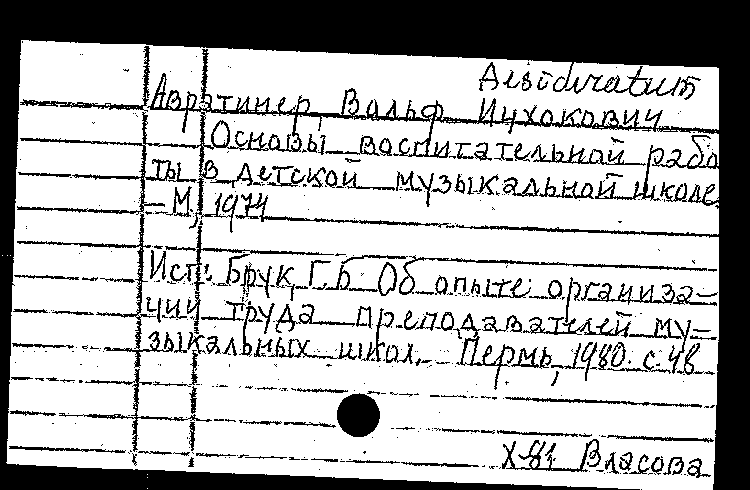 Desideratum
Авратинер, Вольф Ицхокович
Основы воспитательной рабо
ты в детской музыкальной школе.
– М., 1974
Ист.: Брук, Г.Б Об опыте организа–
ции труда преподавателей му–
зыкальных школ. Пермь, 1980. с. 48
X-81 Власова